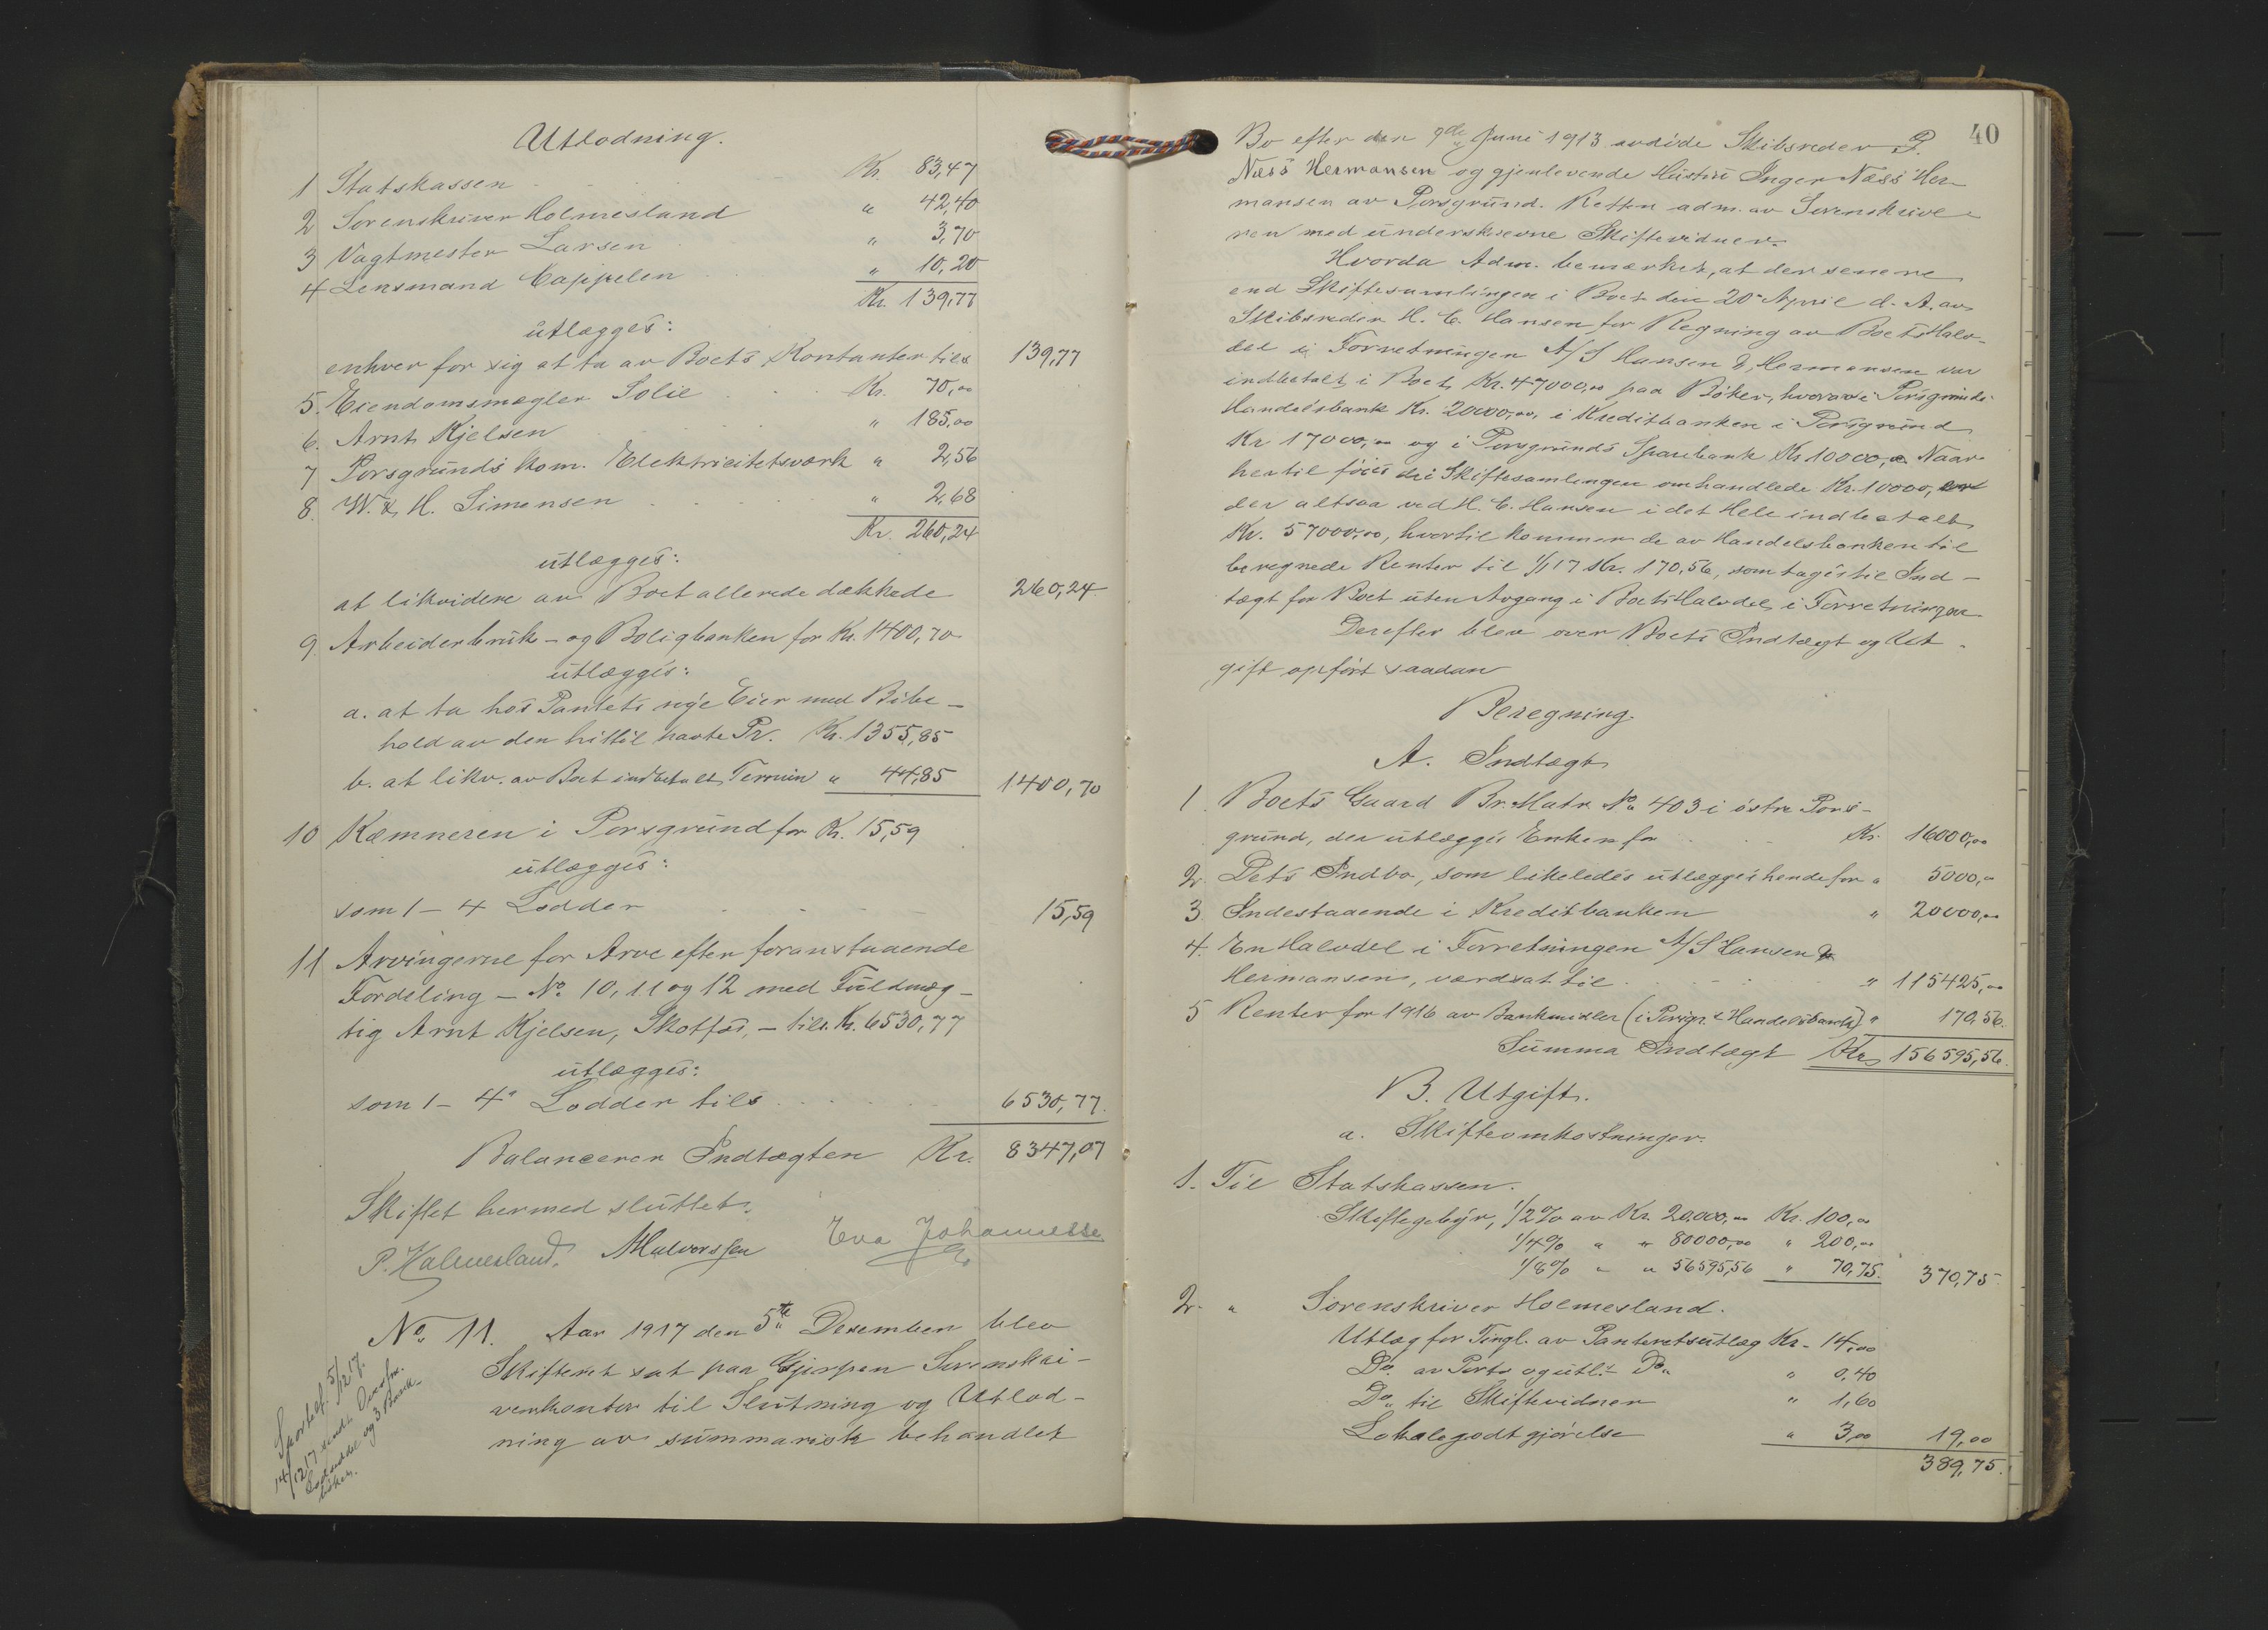 Utlodning.
1 Statskassen Kr. 83,47
2 Sorenskriver Holmesland " 42,40
3 Vagtmester Larsen " 3,70
4 Lensmand Cappelen " 10,20
Kr. 139,77
utlægges:
enhver for sig at ta av Boets Kontanter tils 139,77
5. Eiendomsmægler Solie Kr. 70,00
6. Arnt Kjelsen " 185,00
7 Porsgrunds kom. Elektricitetsværk " 2,56
8. W. & H. Simonsen " 2,68
Kr. 260,24
utlægges:
at likvidere av Boet allerede dækkede 260,24
9. Arbeiderbruk- og Boligbanken for Kr. 1400,70
utlægges:
a. at ta hos Pantets nye Eier med Bibe-
hold av den hittil havte Pr. Kr. 1355,85
b. at likv. av Boet indbetalt Termin " 44,85 1400,70
10 Kæmneren i Porsgrund for Kr. 15,59
utlægges:
som 1 - 4 Lodder 15,59
11 Arvingerne for Arve efter foranstaaende
Fordeling - No. 10, 11 og 12 med Fuldmæg-
tig Arnt Kjelsen, Skotfos, - tils. Kr. 6530,77
utlægges:
som 1 - 4" Lodder tils 6530,77.
Balancerer Indtægten Kr. 8347,07
Skiftet hermed sluttet.
P. Holmesland. AHalvorssen Eva Johannesse
No. 11. Aar 1917 den 5te Desember blev
Skifteret sat paa Gjerpen Sorenskri-
verkontor til Slutning og Utlod-
ning av summarisk behandlet
5/12 17.
14/12 17 sendt
og 3 Bank-
bøker.
40
Bo efter den 7de Juni 1913 avdøde Skibsreder P.
Næss Hermansen og gjenlevende Hustru Inger Næss Her-
mansen av Porsgrund. Retten adm. av Sorenskrive-
ren med underskrevne Skiftevidner.
Hvorda Adm. bemærket, at der senere
end Skiftesamlingen i Boet den 20de April d. A. av
Skibsreder H. C. Hansen for Regning av Boets Halv-
del i Forretningen A/S Hansen & Hermansen var
indbetalt i Boet Kr. 47000,00 paa Bøker, hvorav i Porsgrunds
Handelsbank Kr. 20000,00, i Kreditbanken i Porsgrund
Kr 17000,00 og i Porsgrunds Sparebank Kr 10000,00. Naar
hertil føies de i Skiftesamlingen omhandlede Kr. 10000, er
der altsaa ved H. C. Hansen i det Hele indbetalt
Kr. 57000,00, hvortil kommer de av Handelsbanken til
beregnede Renter til 1/1 17 Kr. 170,56, som tages til Ind-
tægt for Boet uten Avgang i Boets Halvdel i Forretningen.
Derefter blev over Boets Indtægt og Ut-
gift opført saadan
Beregning.
A. Indtægt
1. Boets Gaard Br. Matr. No. 403 i østre Pors-
grund, der utlægges Enken for Kr. 16000,00
2. Dets Indbo, som likeledes utlægges hende for " 5000,"
3 Indestaaende i Kreditbanken " 20000,00
4. En Halvdel i Forretningen A/S Hansen &
Hermansen, værdsat til " 115425,00
5 Renter for 1916 av Bankmidler (i Porsgr. Handelsbank) " 170,56.
Summa Indtægt Kr. 156595,56.
B. Utgift.
a. Skifteomkostninger.
1. Til Statskassen.
Skiftegebyr, 1/2% av Kr. 20,000,00 Kr. 100,00
1/4% " " 80000,00 " 200,00
1/8% " " 56595,56 " 70,75. 370,75.
2. " Sorenskriver Holmesland.
Utlæg for Tingl. av Panteretsutlæg Kr. 14,00
Do. av Porto og utl. Do. " 0,40
Do. til Skiftevidner " 1,60
Lokalegodtgjørelse " 3,00 19,00
389,75.